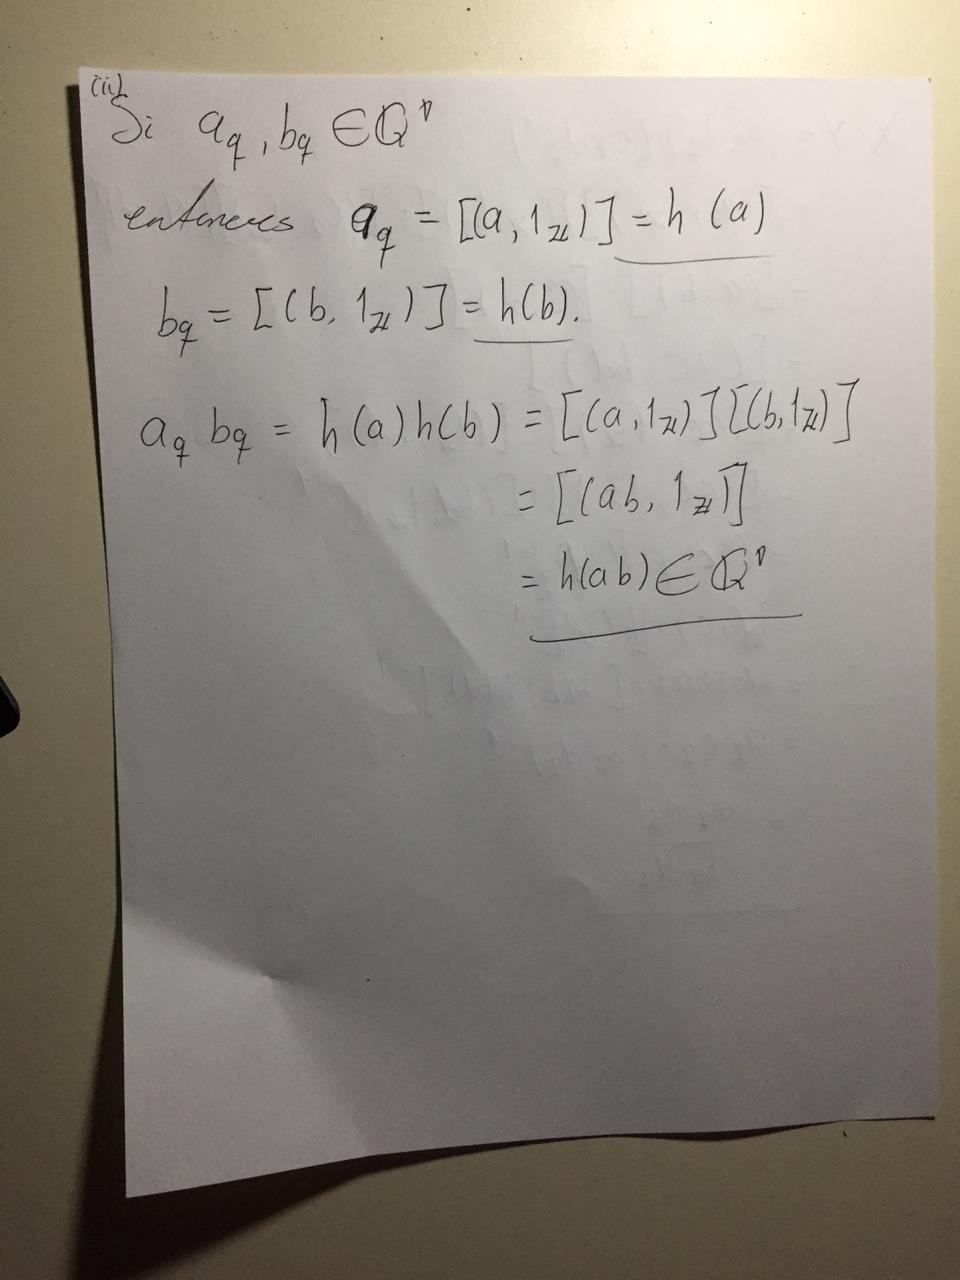 (ii)
Si a_q, b_q ∈ ℚ'
entonces a_q = [(a, 1_ℤ)] = h(a)
b_q = [(b, 1_ℤ)] = h(b).
a_q b_q = h(a)h(b) = [(a, 1_ℤ)][(b, 1_ℤ)]
= [(ab, 1_ℤ)]
= h(ab) ∈ ℚ'